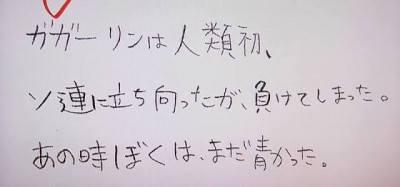 ガガーリンは人類初、
ソ連に立ち向ったが、負けてしまった。
あの時ぼくは、まだ青かった。